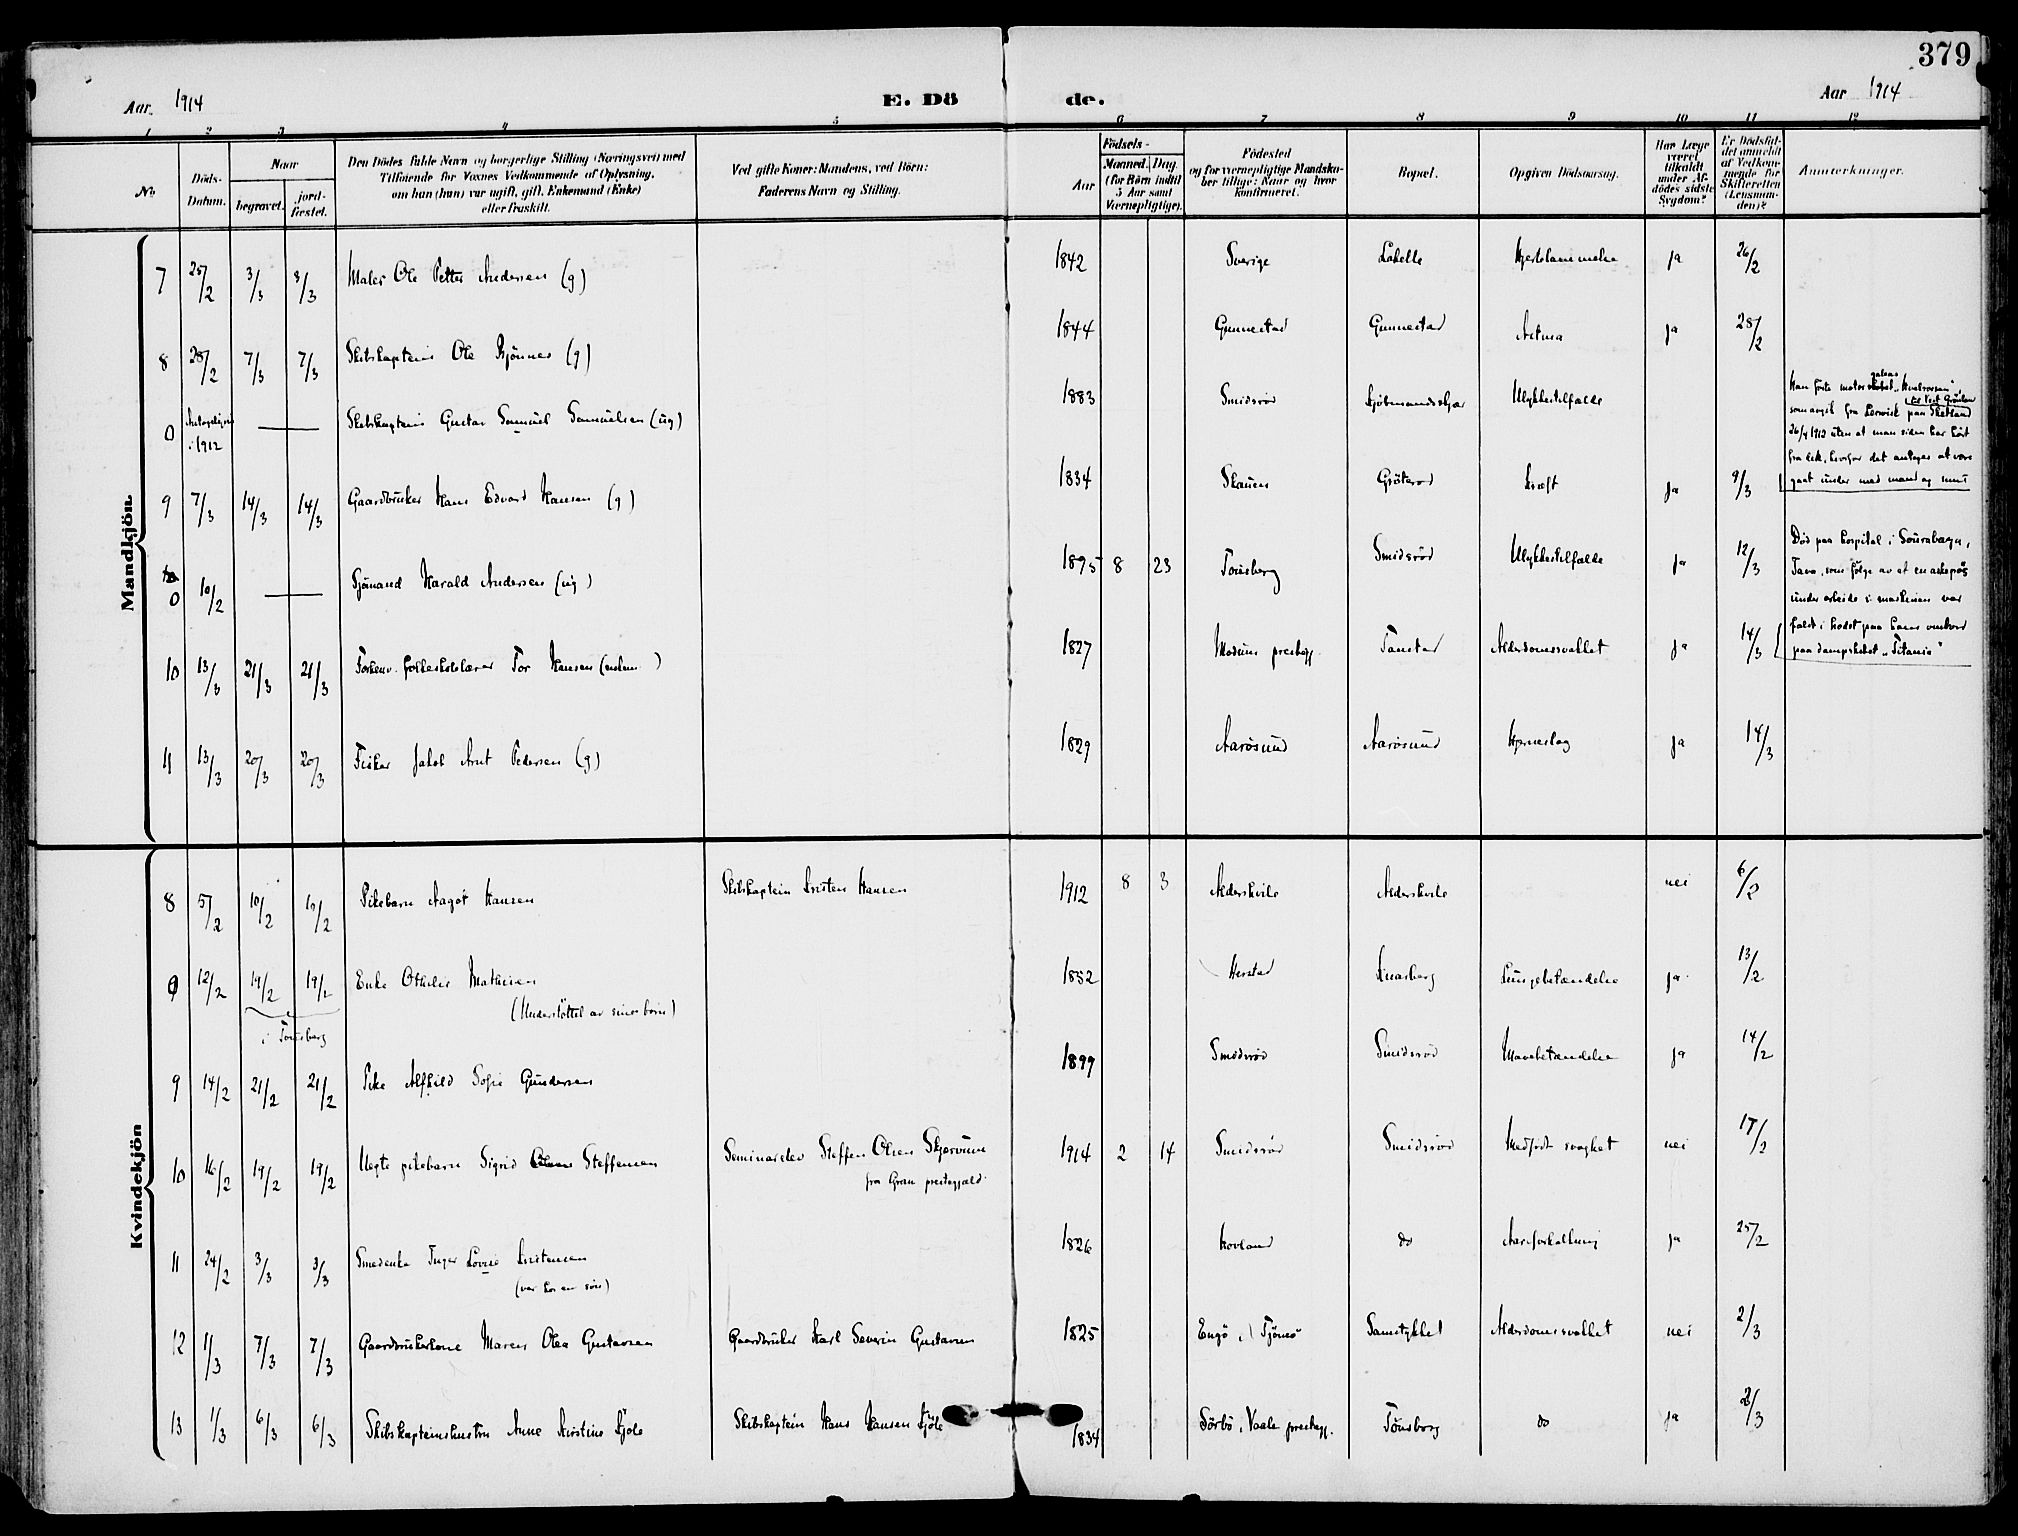 379
Aar 1914 E. Dö de. Aar 1914
1 2 3 4 5 6 7 8 9 10 11 12
No
Döds-Datum.
Naar
begravet. jord-fæstet.
Den Dödes fulde Navn og borgerlige Stilling (Næringsvei) med
Tilföiende for Voxnes Vedkommende af Oplysning,
om han (hun) var ugift, gift, Enkemand (Enke)
eller fraskilt.
Ved gifte Koner: Mandens, ved Börn:
Faderens Navn og Stilling.
Födsels-
Aar Maaned. Dag.
(for Börn indtil
5 Aar samt
Værnepligtige).
Födested
og for værnepligtige Mandska-
ber tillige: Naar og hvor
konfirmeret.
Bopæl.
Opgiven Dödsaarsag.
Har Læge
været
tilkaldt
under Af-
dödes sidste
Sygdom?
Er Dödsfal-
det anmeldt
af Vedkom-
mende for
Skifteretten
(Lensman-
den)?
Anmærkninger.
Mandkjön
7 25/2 3/3 3/3 Maler Ole Petter Andersen (g) 1842 Sverige Labello Hjertelammelse ja 26/2
8 28/2 7/3 7/3 Skibskaptein Ole Bjönnes (g) 1844 Gunnestad Gunnestad Astma ja 28/2
0 Antagelig i 1912 Skibskaptein Gustav Samuel Samuelsen (ug) 1883 Smidsrød Kjøbmandskjær Ulykkestilfælde
Han førte motorskibet galeas "Hvalrossen",
som avgik fra Lerwick paa Shetland til Vest Grönland
26/4 1912 uten at man siden har hört
fra det, hvorfor det antages at være
gaat under med mand og mus
9 7/3 14/3 14/3 Gaardbruker Hans Edvard Hansen (g) 1834 Skauen Gröterød Kræft ja 9/3
0 10/2 Sjömand Harald Andersen (ug) 1895 8 23 Tønsberg Smidsrød Ulykkestilfælde ja 12/3
Död paa hospital i Sourabaya,
Java, som følge av at en askepøs
under arbeide i maskinen var
faldt i hodet paa ham ombord
paa dampskibet "Titania"
10 13/3 21/3 21/3 Forhenv. folkeskolelærer Tor Hansen (enkem.) 1827 Modum prestegj. Fanstad Alderdomssvakhet ja 14/3
11 13/3 20/3 20/3 Fisker Jakob Arnt Pedersen (g) 1829 Aarøsund Aarøsund Hjerneslag ja 14/3
Kvindekjön
8 5/2 10/2 10/2 Pikebarn Aagot Hansen Skibskaptein Kristen Hansen 1912 8 3 Alderskvile Alderskvile nei 6/2
0 12/2 19/2 19/2 Enke Othilie Mathisen 1852 Herstad Knarberg Lungebetændelse ja 13/2
(Understöttet av sine barn)
i Tønsberg
9 14/2 21/2 21/2 Pike Alfhild Sofie Gundersen 1899 Smidsrød Smidsrød Mavebetændelse ja 14/2
10 16/2 19/2 19/2 Uegte pikebarn Sigrid Steffensen Seminarelev Steffen Olsen Skjervum 1914 2 14 Smidsrød Smidsrød Medfødt svaghet nei 17/2
fra Gran prestegjæld
11 24/2 3/3 3/3 Smedenke Inger Lovise Kristensen 1826 Hovland do Aareforkalkning ja 25/2
(var hos en søn)
12 1/3 7/3 7/3 Gaardbrukerkone Maren Olea Gustavsen Gaardbruker Karl Severin Gustavsen 1825 Engö, Tjömö Samstykket Alderdomssvakhet nei 2/3
13 1/3 6/3 6/3 Skibskapteinshustru Anne Kirstine Fjöle Skibskaptein Hans Hansen Fjöle 1834 Sörbö, Vaale prestegj. Tønsberg do ja 2/3